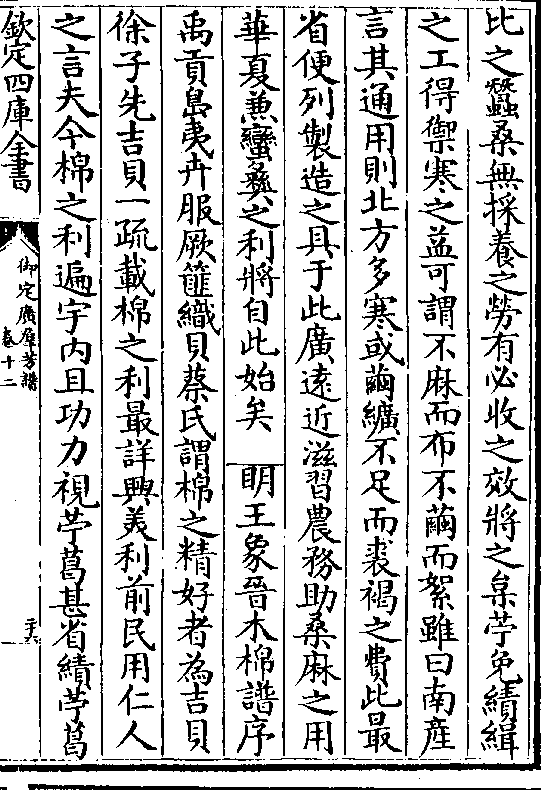 比之蠶桑無採養之勞有必收之效將之枲苧免績緝
之工得禦寒之益可謂不麻而布不繭而絮雖曰南產
言其通用則北方多寒或繭纊不足而裘褐之費此最
省便列製造之具于此廣遠近滋習農務助桑麻之用
華夏兼蠻彝之利將自此始矣 明王象晉木棉譜序
禹貢島夷卉服厥篚織貝蔡氏謂棉之精好者為吉貝
徐子先吉貝一疏載棉之利最詳興美利前民用仁人
之言夫今棉之利遍宇内且功力視苧葛甚省績苧葛
欽定四庫全書
御定廣羣芳譜
卷十二